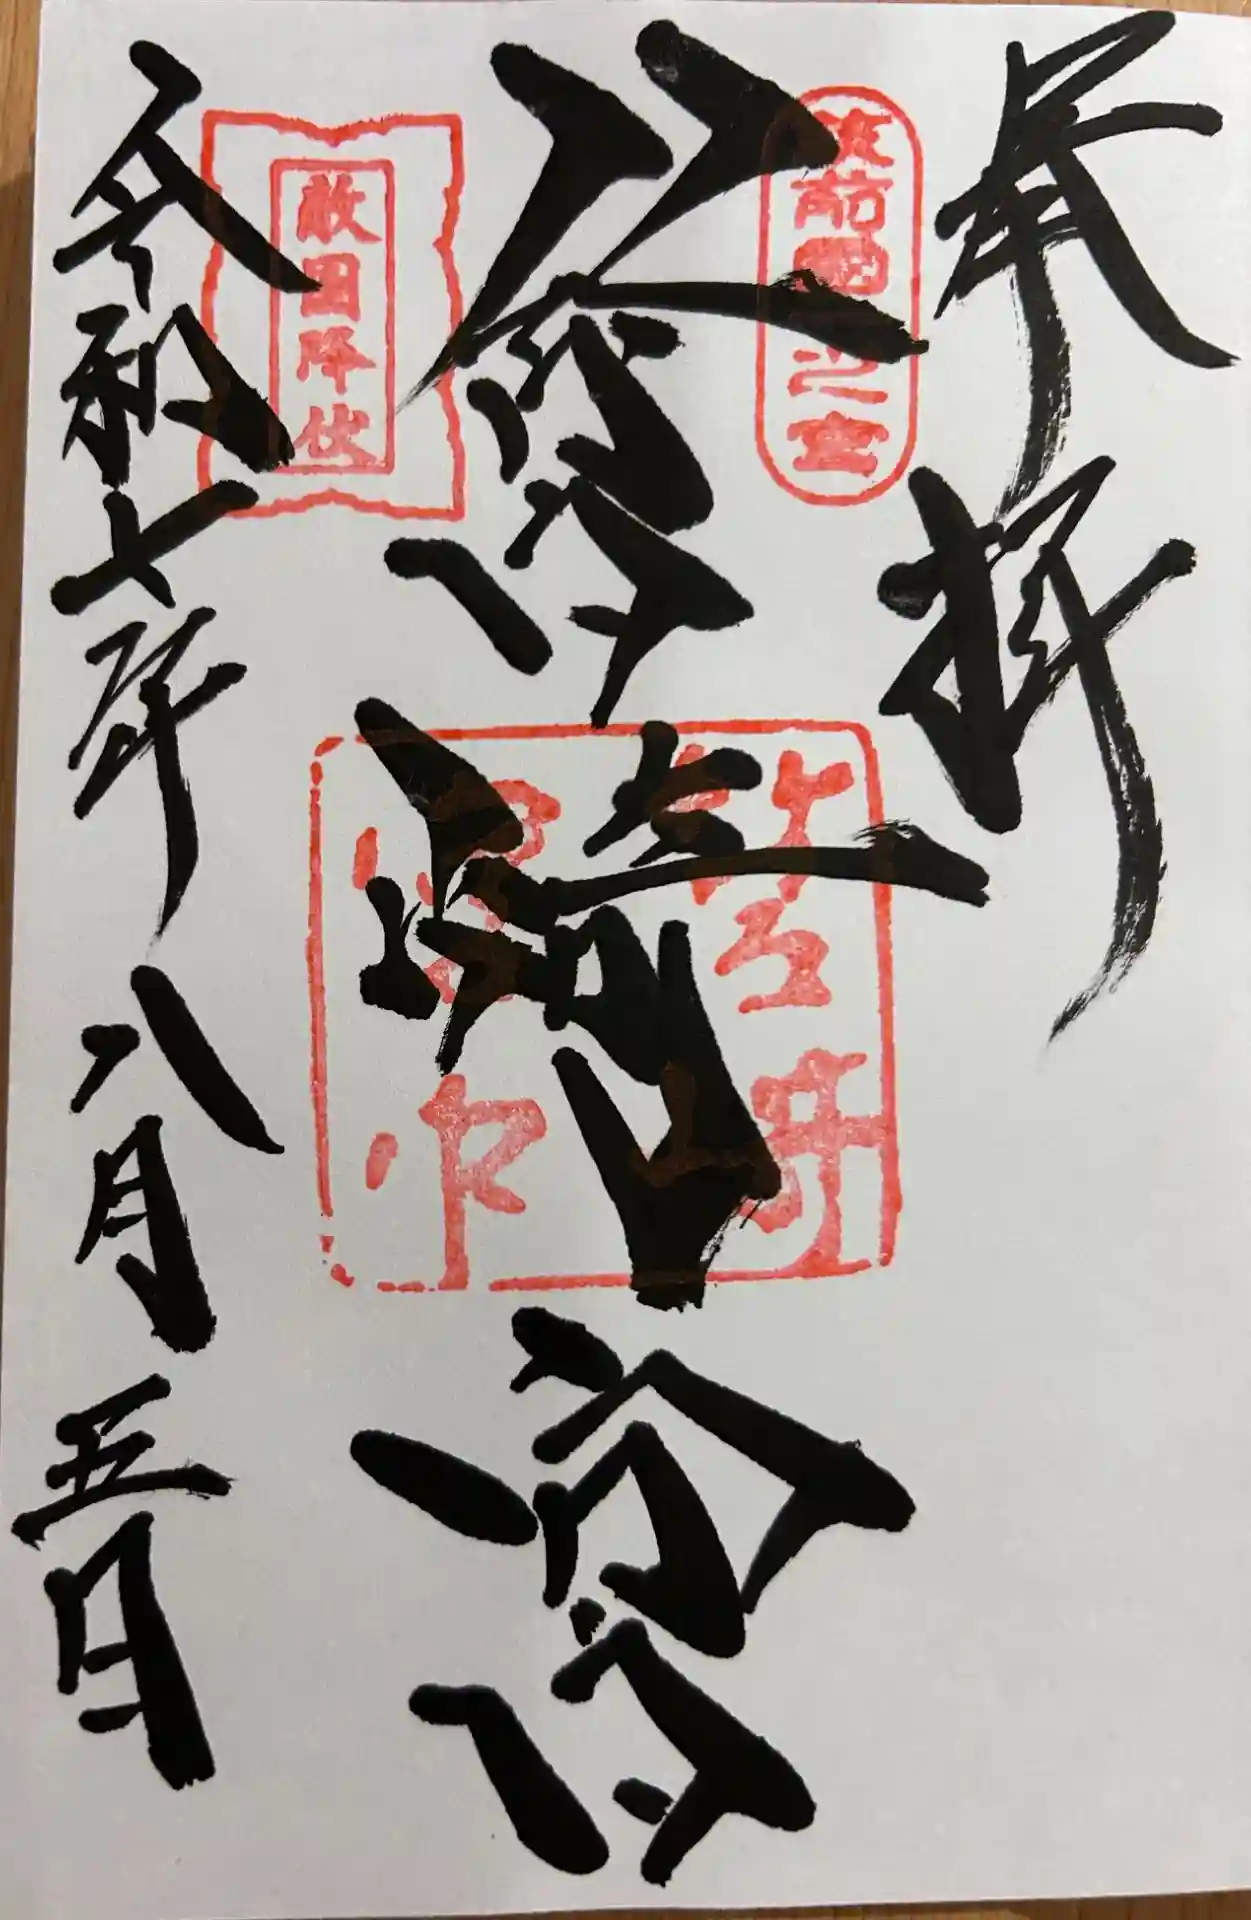 奉拝
筑前國一之宮
筥崎宮
筥崎宮
敵国降伏
令和七年八月五日